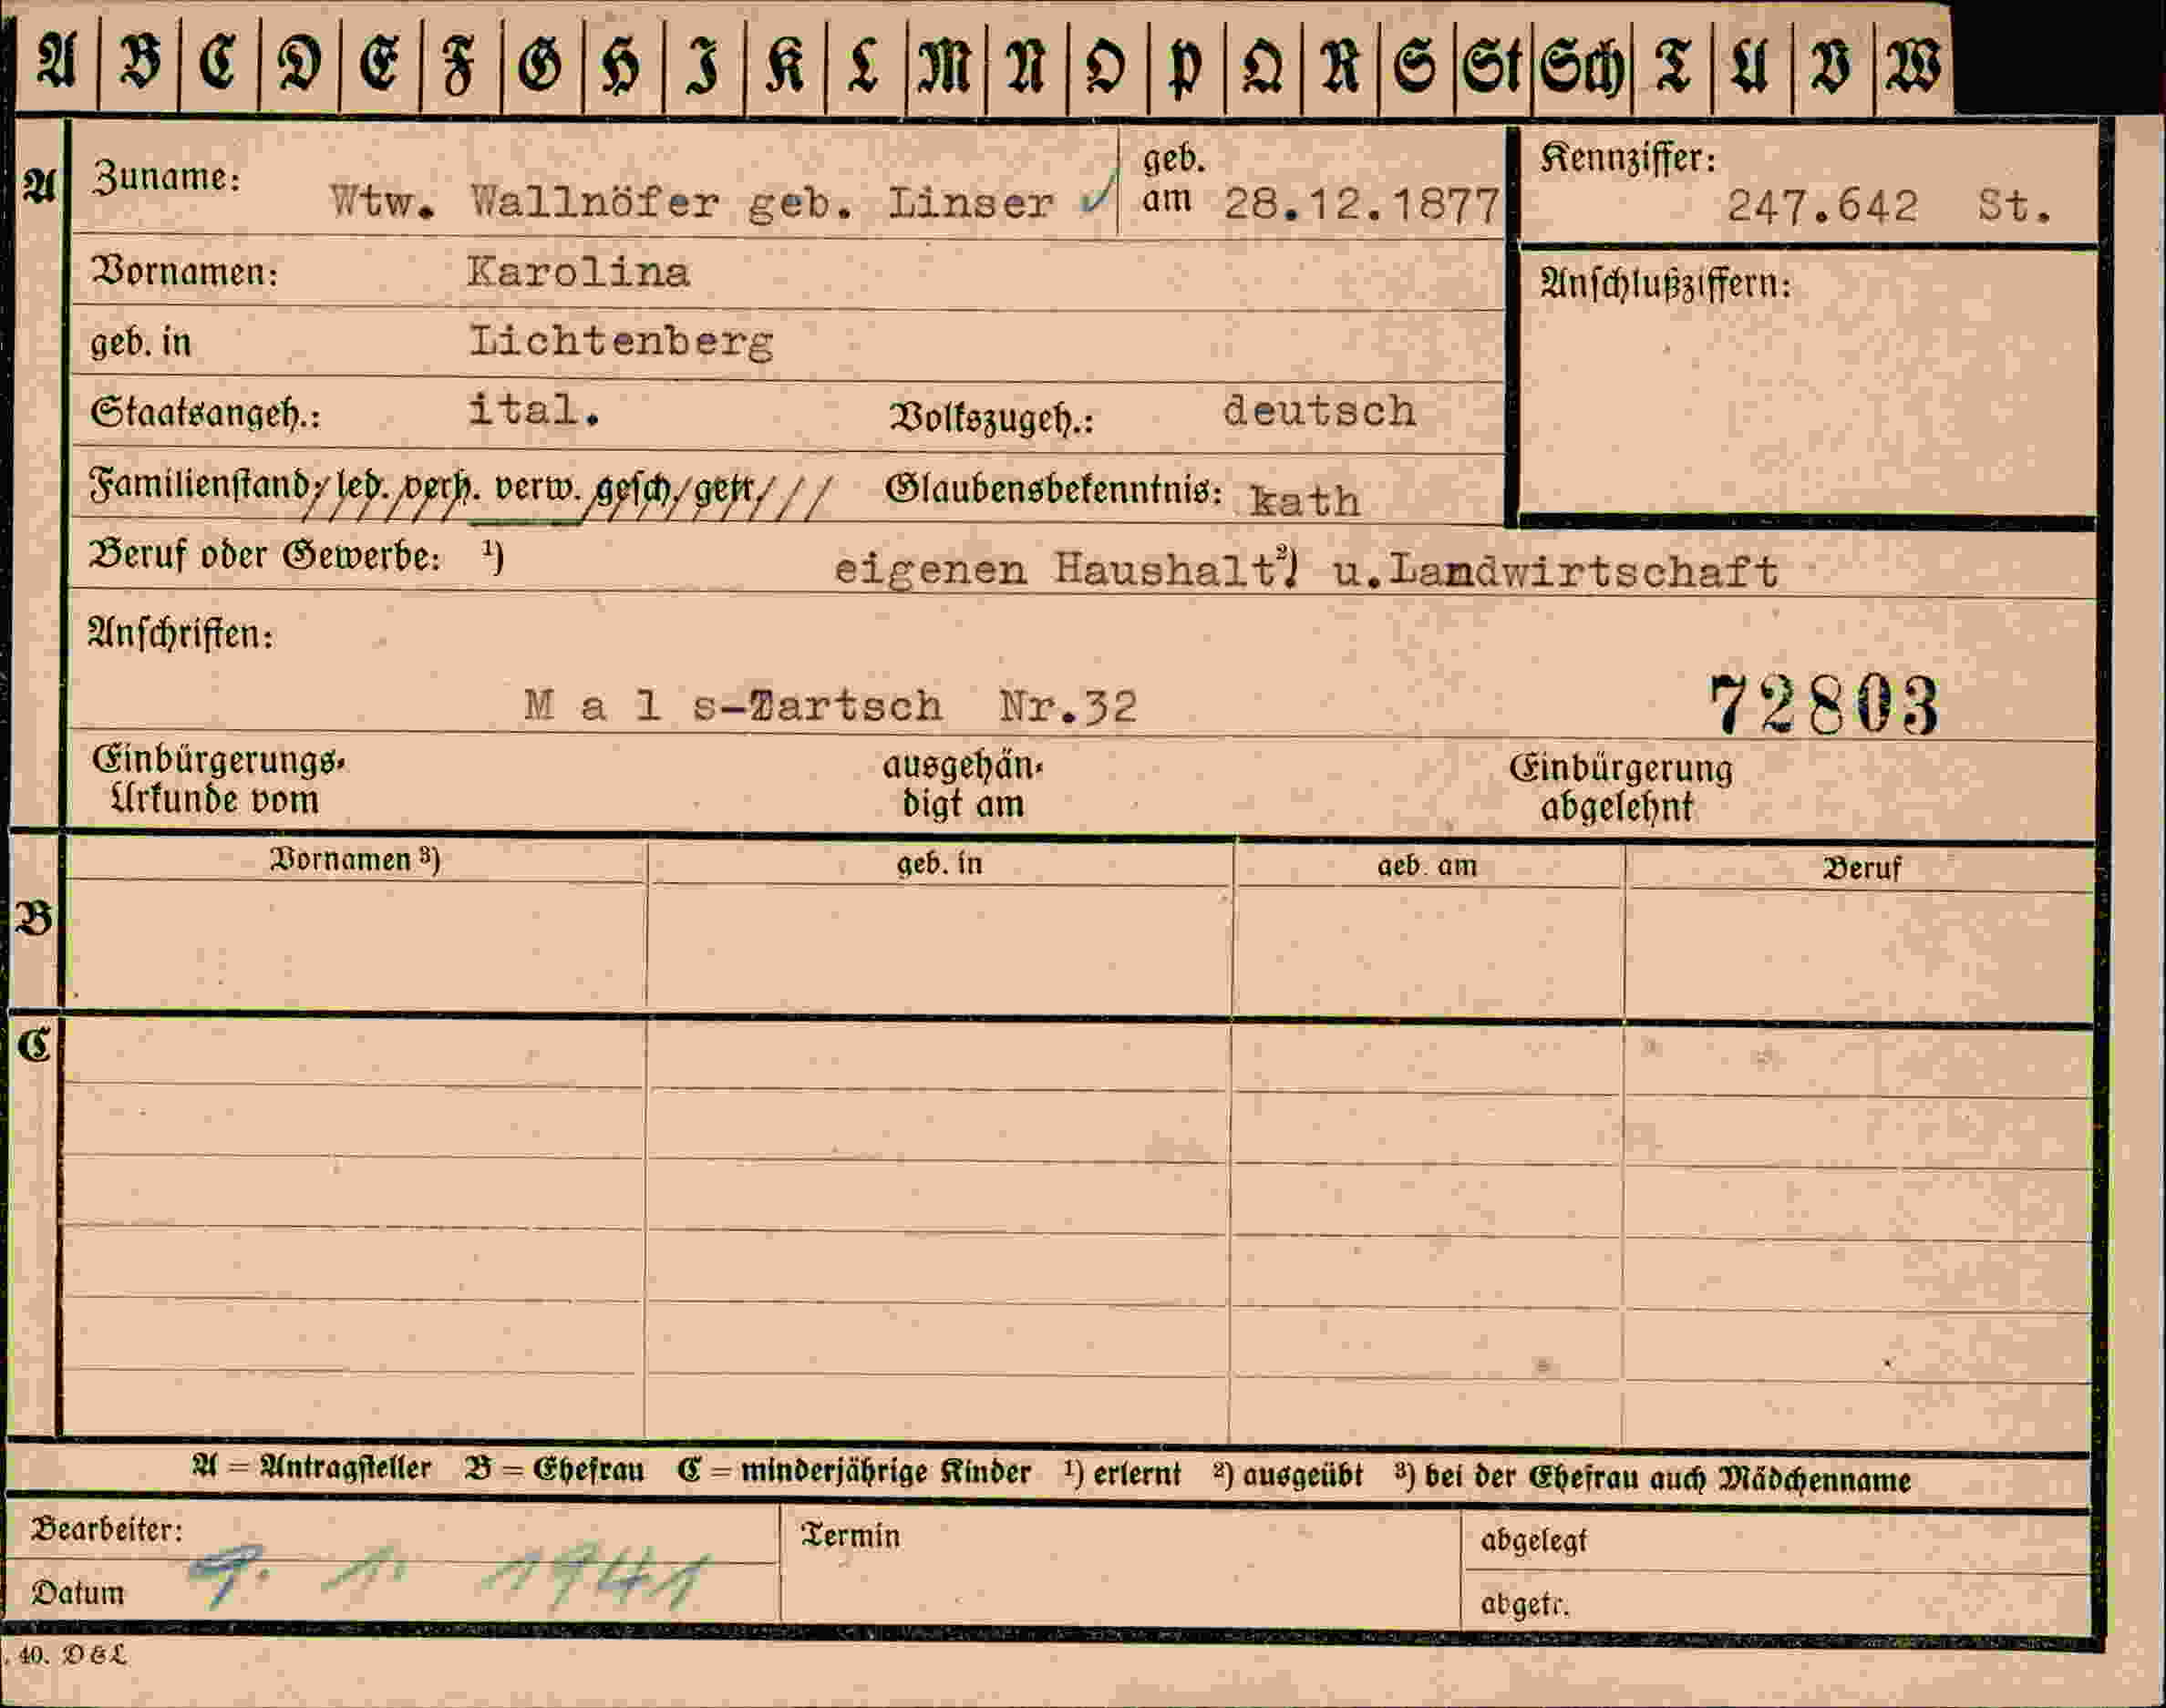 A B C D E F G H I K L M N O P Q R S St Sch T U V W
A Zuname: Wtw. Wallnöfer geb. Linser ✓ geb. am 28.12.1877 Kennziffer: 247.642 St.
Vornamen: Karolina Anschlußziffern:
geb. in Lichtenberg
Staatsangeh.: ital. Volkszugeh.: deutsch
Familienstand: led. verh. verw. gesch. getr. Glaubensbekenntnis: kath
Beruf oder Gewerbe: ¹) eigenen Haushalt ²) u.Landwirtschaft
Anschriften:
M a l s-Tartsch Nr.32 72803
Einbürgerungs- ausgehän- Einbürgerung
Urkunde vom digt am abgelehnt
Vornamen ³) geb. in geb. am Beruf
B
C
A = Antragsteller B = Ehefrau C = minderjährige Kinder ¹) erlernt ²) ausgeübt ³) bei der Ehefrau auch Mädchenname
Bearbeiter: Termin abgelegt
9. 1. 1941
Datum abgetr.
. 40. D & L